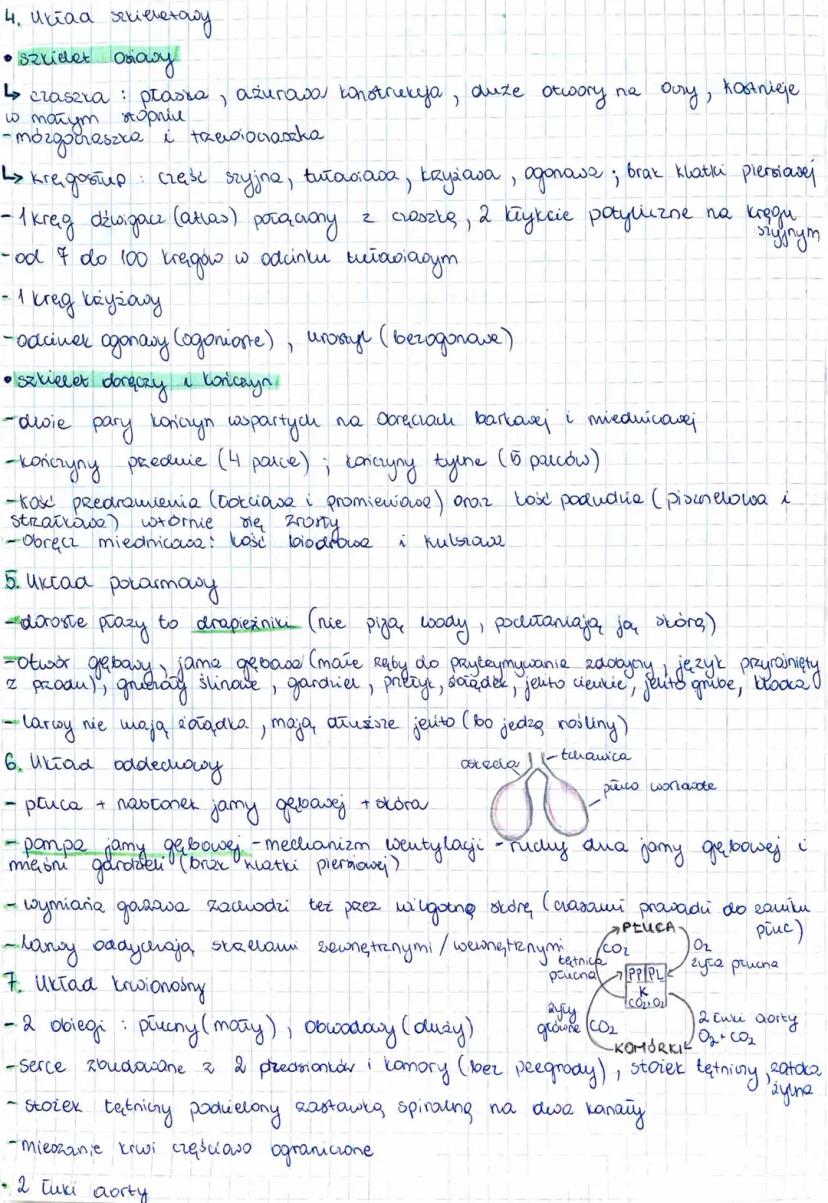 4. Układ szkieletowy
• szkielet osiowy
↳ czaszka : płaska , ażurowa konstrukcja , duże otwory na oczy , kostnieje
w małym stopniu
- mózgoczaszka i trzewioczaszka
↳ kręgosłup : część szyjna, tułowiowa, krzyżowa , ogonowa ; brak klatki piersiowej
- 1 kręg dźwigacz (atlas) połączony z czaszką , 2 kłykcie potyliczne na kręgu
szyjnym
- od 7 do 100 kręgów w odcinku tułowiowym
- 1 kręg krzyżowy
- odcinek ogonowy (ogoniaste) , urostyl (bezogonowe)
• szkielet obręczy i kończyn
- dwie pary kończyn wspartych na obręczach barkowej i miednicowej
- kończyny przednie (4 palce) ; kończyny tylne (5 palców)
- kość przedramienia (łokciowa i promieniowa) oraz kość podudzia (piszczelowa i
strzałkowa) wtórnie się zrosły
- obręcz miednicowa: kość biodrowa i kulszowa
5. Układ pokarmowy
- dorosłe płazy to drapieżniki (nie piją wody , pochłaniają ją skórą)
- otwór gębowy , jama gębowa (małe zęby do przytrzymywania zdobyczy , język przyrośnięty
z przodu) , gruczoły ślinowe , gardziel , przełyk, żołądek, jelito cienkie, jelito grube, kloaka
- larwy nie mają żołądka , mają dłuższe jelito (bo jedzą rośliny)
6. Układ oddechowy
oskrzela
tchawica
płuco workowate
- płuca + nabłonek jamy gębowej + skóra
- pompa jamy gębowej - mechanizm wentylacji - ruchy dna jamy gębowej i
mięśni gardzieli (brak klatki piersiowej)
- wymiana gazowa zachodzi też przez wilgotną skórę (czasami prowadzi do zaniku
płuc)
- larwy oddychają skrzelami zewnętrznymi / wewnętrznymi
PŁUCA
CO2
O2
tętnica
płucna
żyła płucna
PP PL
K
CO2+O2
żyły
główne
CO2
2 łuki aorty
O2+CO2
KOMÓRKI
7. Układ krwionośny
- 2 obiegi : płucny (mały) , obwodowy (duży)
- serce zbudowane z 2 przedsionków i komory (bez przegrody) , stożek tętniczy , zatoka
żylna
- stożek tętniczy podzielony zastawką spiralną na dwa kanały
- mieszanie krwi częściowo ograniczone
- 2 łuki aorty